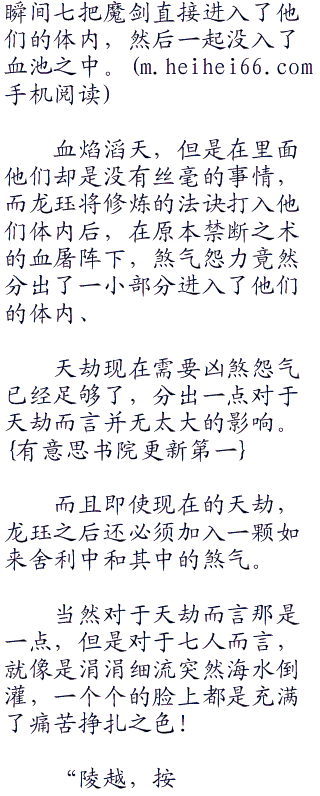 瞬间七把魔剑直接进入了他
们的体内，然后一起没入了
血池之中。(m.heihei66.com
手机阅读)
血焰滔天，但是在里面
他们却是没有丝毫的事情，
而龙珏将修炼的法诀打入他
们体内后，在原本禁断之术
的血屠阵下，煞气怨力竟然
分出了一小部分进入了他们
的体内、
天劫现在需要凶煞怨气
已经足够了，分出一点对于
天劫而言并无太大的影响。
{有意思书院更新第一}
而且即使现在的天劫，
龙珏之后还必须加入一颗如
来舍利中和其中的煞气。
当然对于天劫而言那是
一点，但是对于七人而言，
就像是涓涓细流突然海水倒
灌，一个个的脸上都是充满
了痛苦挣扎之色！
“陵越，按